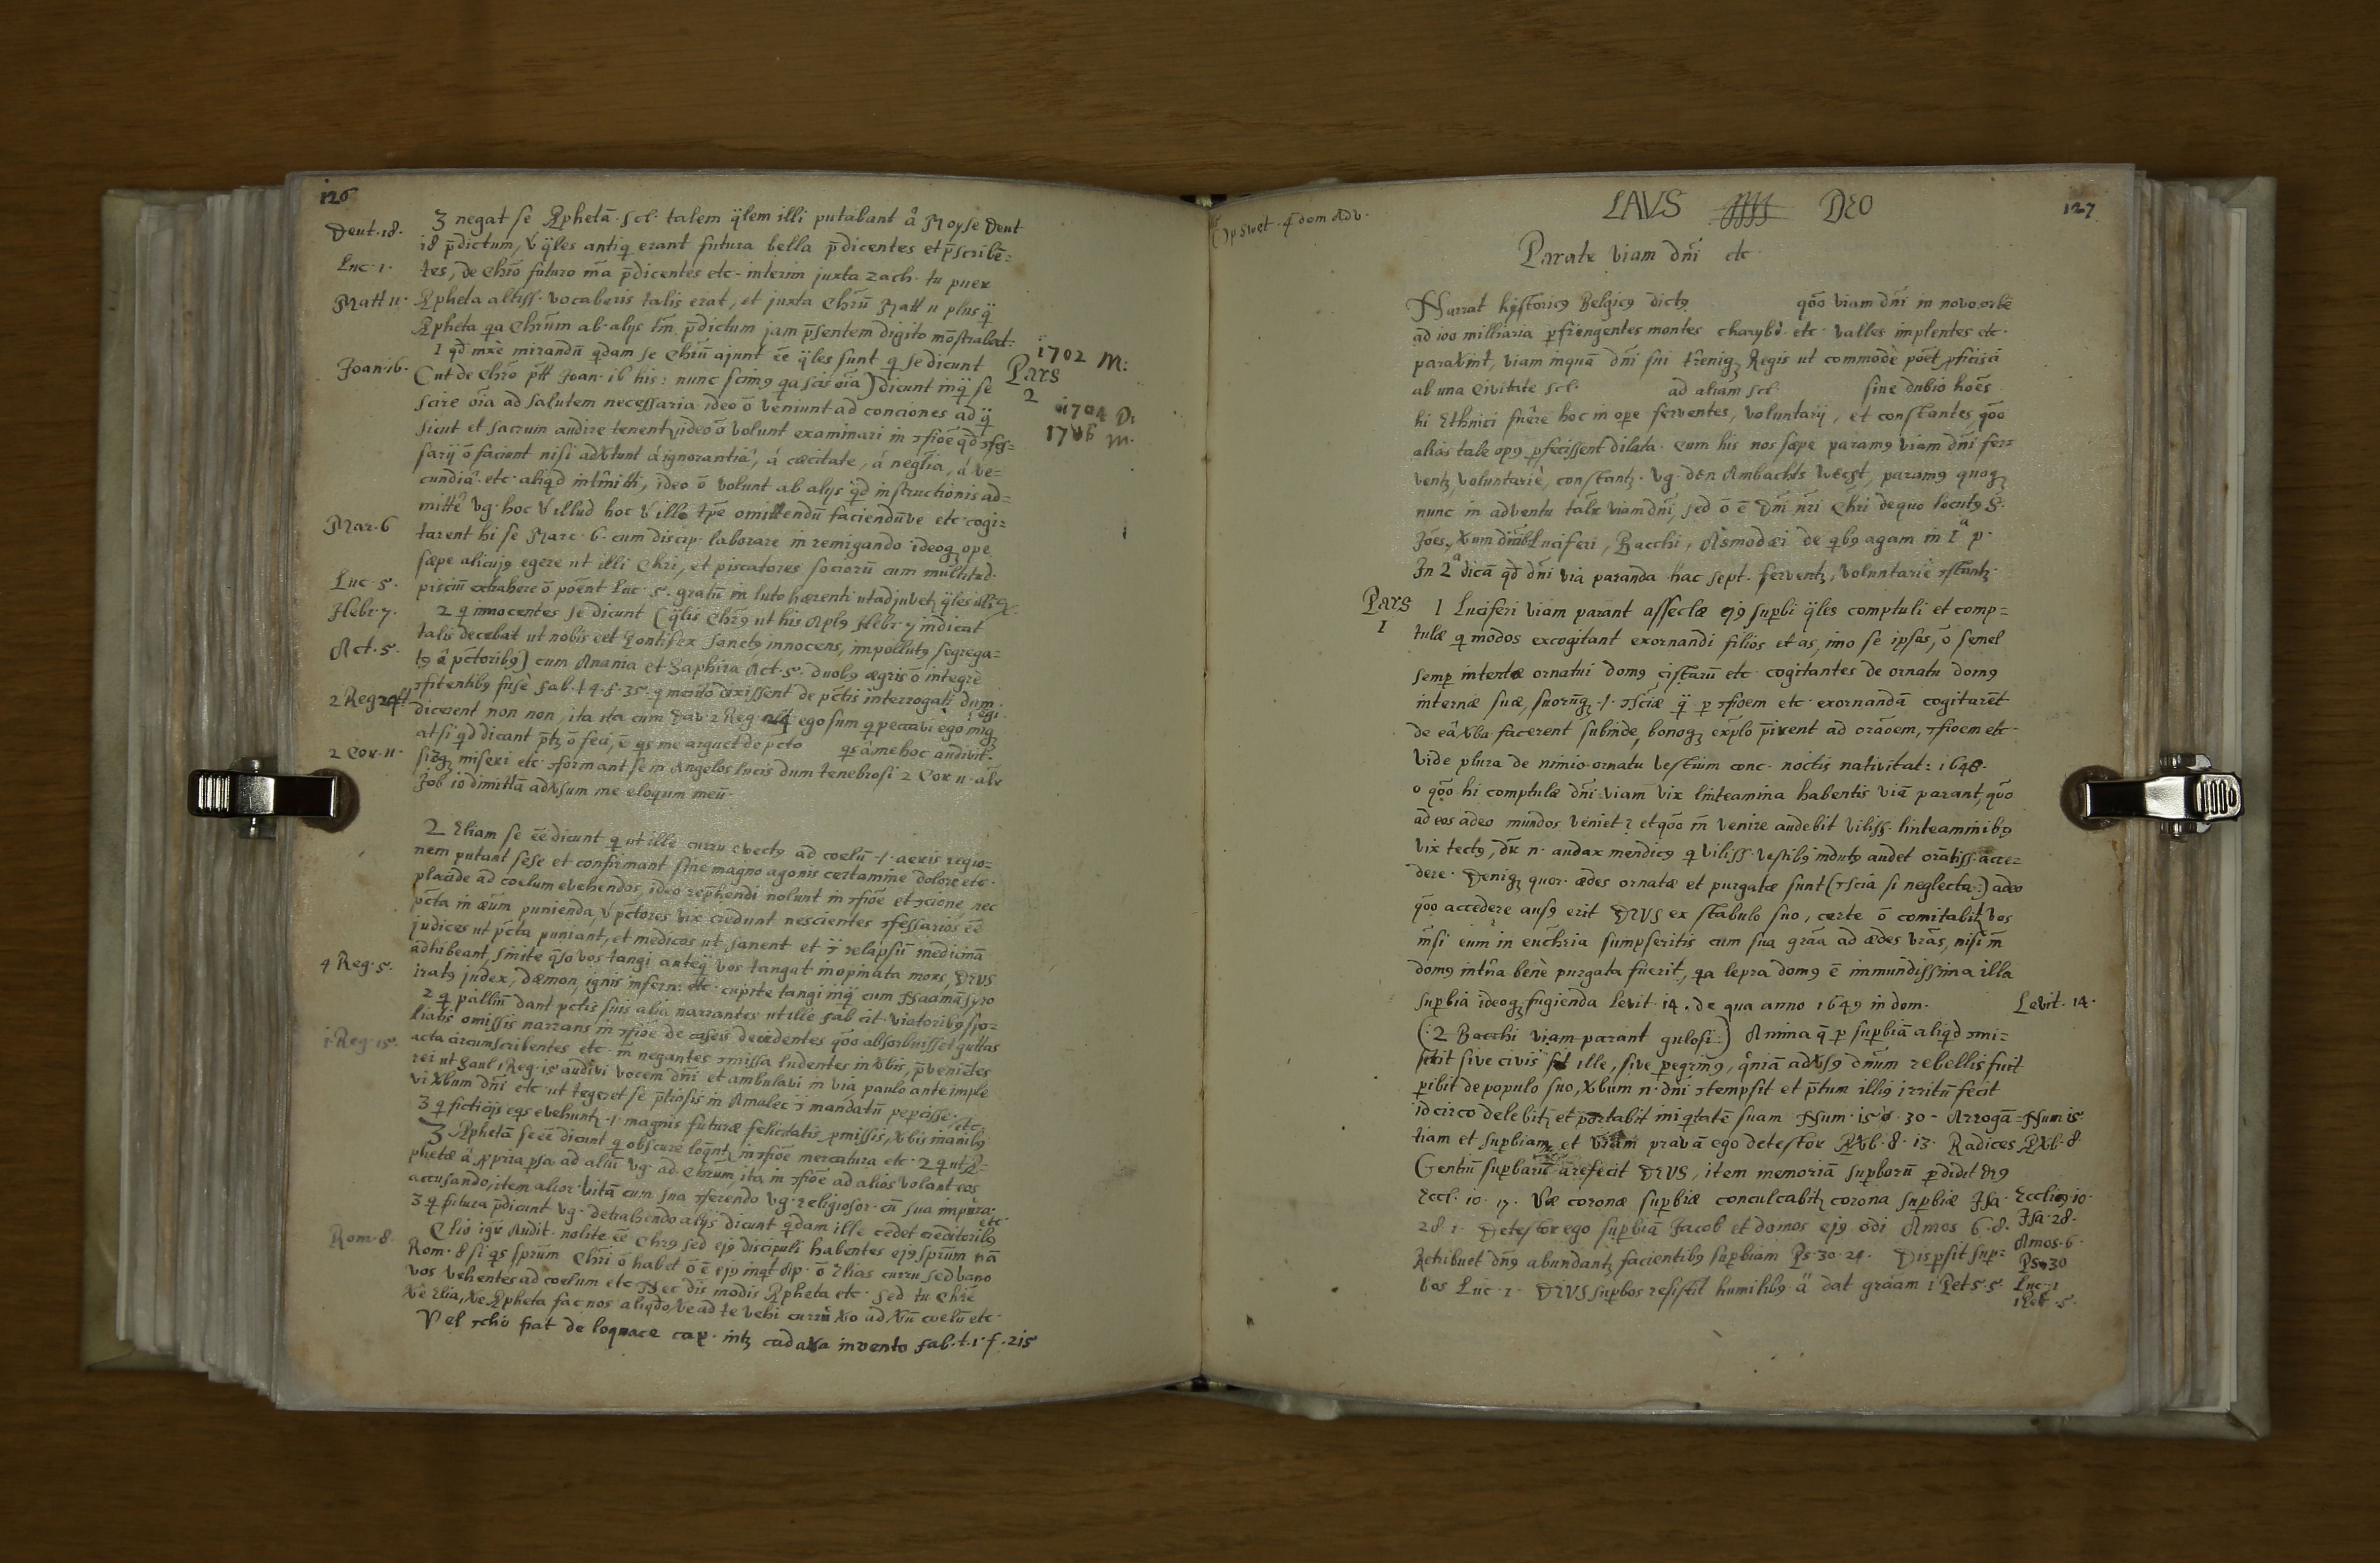 126
Deut. 18. 3 negat se Ꝓphetā. scl. talem q̄lem illi putabant â Moyse Deut
18 p̄dictum, v̄ q̄les antiq̨ erant futura bella p̄dicentes et p̄scribē=
Luc. 1. tes, de Chrō futuro m̄a p̄dicentes etc. interim juxta zach. tu puer
Matt 11. Ꝓpheta altiss. vocaberis talis erat, et juxta Chrūm Matt 11 plusq̄
Ꝓpheta qa Chrūm ab alijs tm̄ p̄dictum jam p̄sentem digito mōstrabat.
1702 M:
1 qd mxē mirandū qdam se Chrū ajunt ēē q̄les sunt q se dicunt
Pars 2
Joan. 16. (ut de Chrō Joan. 16 his: nunc scimꝯ qa scis oīa) dicunt inq̄ se
scire oīa ad salutem necessaria ideo ō veniunt ad conciones ad q̄
1704 D:
sicut et sacrum audire tenent, ideo ō volunt examinari in ꝯfioē qd ꝯfes=
1706 M.
sarij ō faciunt nisi advtunt á ignorantiâ, á cæcitate, á neglīa, á ve=
cundiâ. etc. aliqd intmitti, ideo ō volunt ab alijs qd instructionis ad=
mittē vg. hoc v̄ illud hoc v̄ illo tpē omittendū faciendūve etc. cogi=
Mar. 6 tarent hi se Marc. 6. cum discip. laborare in remigando ideoq̨ ope
sæpe alicujꝯ egere ut illi Chri, et piscatores sociorū cum multitud.
Luc. 5. pisciū extrahere ō poēnt Luc. 5. gratū in luto hærenti ut adjuvet q̄les illi
Hebr. 7. 2 q innocentes se dicunt (q̄lis Chrꝯ ut his Aplꝯ Hebr 7 indicat
talis decebat ut nobis eēt Pontifex sanctꝯ innocens, impollutꝯ segrega=
Act. 5. tꝯ â pctoribꝯ) cum Anania et Saphira Act. 5. duobꝯ ægris ō integrē
ꝯfitentibꝯ fusē fab. t 4. f. 35. q meritō dixissent de pctis interrogati dum
2 Reg 24. dicerent non non, ita ita cum Dav. 2 Reg. 24 ego sum q peccavi ego iniq̨ egi.
at si qd dicant p̄tꝫ ō feci, ē qs me arguet de pcto qs â me hoc audivit.
2 Cor. 11. sicq̨ miseri etc. ꝯformant se in Angelos lucis dum tenebrosi 2 Cor 11. alr
Job 10 dimittā advsum me eloqum meū.
2 Eliam se ēē dicunt q ut ille curru evectꝯ ad coelū .1. aeris regio=
nem putant sese et confirmant sine magno agonis certamine dolore etc.
placide ad coelum evehendos, ideo rep̄hendi nolunt in ꝯfioē et ꝯcione nec
pcta in æūm punienda, v̄ pctores vix credunt nescientes ꝯfessarios ēē
judices ut pcta puniant, et medicos ut sanent et relapsū medicinā
adhibeant, sinite q̄so vos tangi anteq̄ vos tangat inopinata mors, DEVS
4 Reg. 5. iratꝯ judex, dæmon, ignis infern. etc. cupite tangi inq̄ cum Naamā syro
2 q palliū dant pctis suis alia narrantes ut ille fab cit. viatoribꝯ spo=
liatis omissis narrans in ꝯfioē de caseis decedentes qōo absorbuisset guttas
1 Reg. 15. acta circumscribentes etc. m̄ negantes ꝯmissa ludentes in vbis, p̄veniētes
rei ut Saul 1 Reg. 15 audivi vocem dnī et ambulavi in viā paulo ante imple
vi vbum dnī etc. ut tegeret se p̄tiosis in Amalec mandatū pepcisse. etc.
3 q ficticijs eqs evehuntꝫ .1. magnis futuræ felicitatis ꝓmissis, vbis inanibꝯ
3 Ꝓphetā se ēē dicunt q obscurē loqnt in ꝯfioē mercatura etc. 2 q ut Ꝓ=
phetæ â ꝓpria psa ad aliū vg. ad Chrūm, ita in ꝯfioē ad alios volant eos
accusando, item alior. vitā cum sua ꝯferendo vg. religiosor. cū sua impura. etc.
3 q futura p̄dicunt vg. detrahendo alijs dicunt qdam ille cedet creditoribꝯ
Clio igr Audit. nolite ēē Chrꝯ sed ejꝯ discipuli habentes ejꝯ sprūm nā
Rom. 8. Rom. 8 si qs sprūm Chrī ō habet ō ē ejꝯ inqt Ap. ō Elias curru sed vano
vos vehentes ad coelum etc. Nec dis modis Ꝓpheta etc. sed tu Chrē
vē Elia, vē Ꝓpheta fac nos aliqdo ad te vehi curru vo ad vū coelū etc.
Vel ꝯchō fiat de loquace cap. intꝫ cadavra invento fab. t. 1. f. 215
127
LAVS DEO
4 dom Adv.
Parate viam dnī etc
Narrat historicꝯ Belgicꝯ dictꝯ qōo viam dnī in novo orbē
ad 100 milliaria pfringentes montes charybd. etc. valles implentes etc.
paravint, viam inquā dnī sui tr̄eniq̨ Regis ut commodē poēt ꝓficisci
ab una civitate scl. ad aliam scl. sine dubio hoēs
hi Ethnici fuēre hoc in ope ferventes, voluntarij, et constantes, qōo
alias tale opꝯ pfecissent dilata. cum his nos sæpe paramꝯ viam dnī fer=
ventꝫ, voluntariē, constantꝫ. vg. den Ambachts Wecht, paramꝯ quoq̨
nunc in adventu talr viam dnī, sed ō ē Dnī nrī Chri de quo locutꝯ S.
Joes, vum Luciferi, Bacchi, Asmodæi de qbꝯ agam in 1ª p.
In 2ª dicā qd dnī via paranda hac sept. ferventꝫ, voluntariē ꝯstantꝫ.
Pars 1 1 Luciferi viam parant asseclæ ejꝯ supbi q̄les comptuli et comp=
tulæ q modos excogitant exornandi filios et as, imo se ipsas, ō semel
semp intentæ ornatui domꝯ cistarū etc. cogitantes de ornatu domꝯ
internæ suæ, suorūq̨ .1. ꝯsciæ q̄ p ꝯfioem etc. exornandā cogitarēt
de eâ vba facerent subinde, bonoq̨ explō p̄irent ad orāoem, ꝯfioem etc.
Vide plura de nimio ornatu vestium conc. noctis nativitat: 1648.
o qōo hi comptulæ dnī viam vix linteamina habentis viā parant, quo
ad eos adeo mundos veniet? et qōo m̄ venire audebit viliss. linteaminibꝯ
vix tectꝯ, dr n. audax mendicꝯ q viliss. vestibꝯ indutꝯ audet orātiss. acce=
dere. Deniq̨ quor. ædes ornatæ et purgatæ sunt (ꝯscia si neglecta:) adeo
qōo accedere ausꝯ erit DEVS ex stabulo suo, certe ō comitabitꝫ vos
m̄si eum in euchria sumpseritis cum sua grāa ad ædes vrās, nisi m̄
domꝯ intna benē purgata fuerit, qa lepra domꝯ ē immundissima illa
supbia ideoq̨ fugienda Levit. 14. de qua anno 1649 in dom. Levit. 14.
(:2 Bacchi viam parant gulosi:) Anima q̄ p supbiā aliqd ꝯmi=
serit sive civis ille, sive pegrinꝯ, qniā advsꝯ dnūm rebellis fuit
pibit de populo suo, vbum n. dnī ꝯtempsit et p̄tum illiꝯ irritū fecit
idcirco delebitꝫ et portabit iniqtatē suam Num. 15. 30. Arrogā= Num 15.
tiam et supbiam et viam pravā ego detestor Ꝓvb. 8. 13. Radices Ꝓvb. 8
Gentiū supbarū arefecit DEVS, item memoriā supborū pdidit
Eccl. 10. 17. Væ coronæ supbiæ conculcabitꝫ corona supbiæ Isa. Eccli 10.
28. 1. Detestor ego supbiā Jacob et domos ejꝯ odi Amos 6. 8. Isa. 28.
Amos. 6.
Retribuet dnꝯ abundantꝫ facientibꝯ supbiam Ps. 30. 24. Dispsit sup= Ps. 30
bos Luc. 1. DEVS supbos resistit humilibꝯ ā dat grāam 1 Pet. 5. 5. Luc. 1
1 Pet. 5.